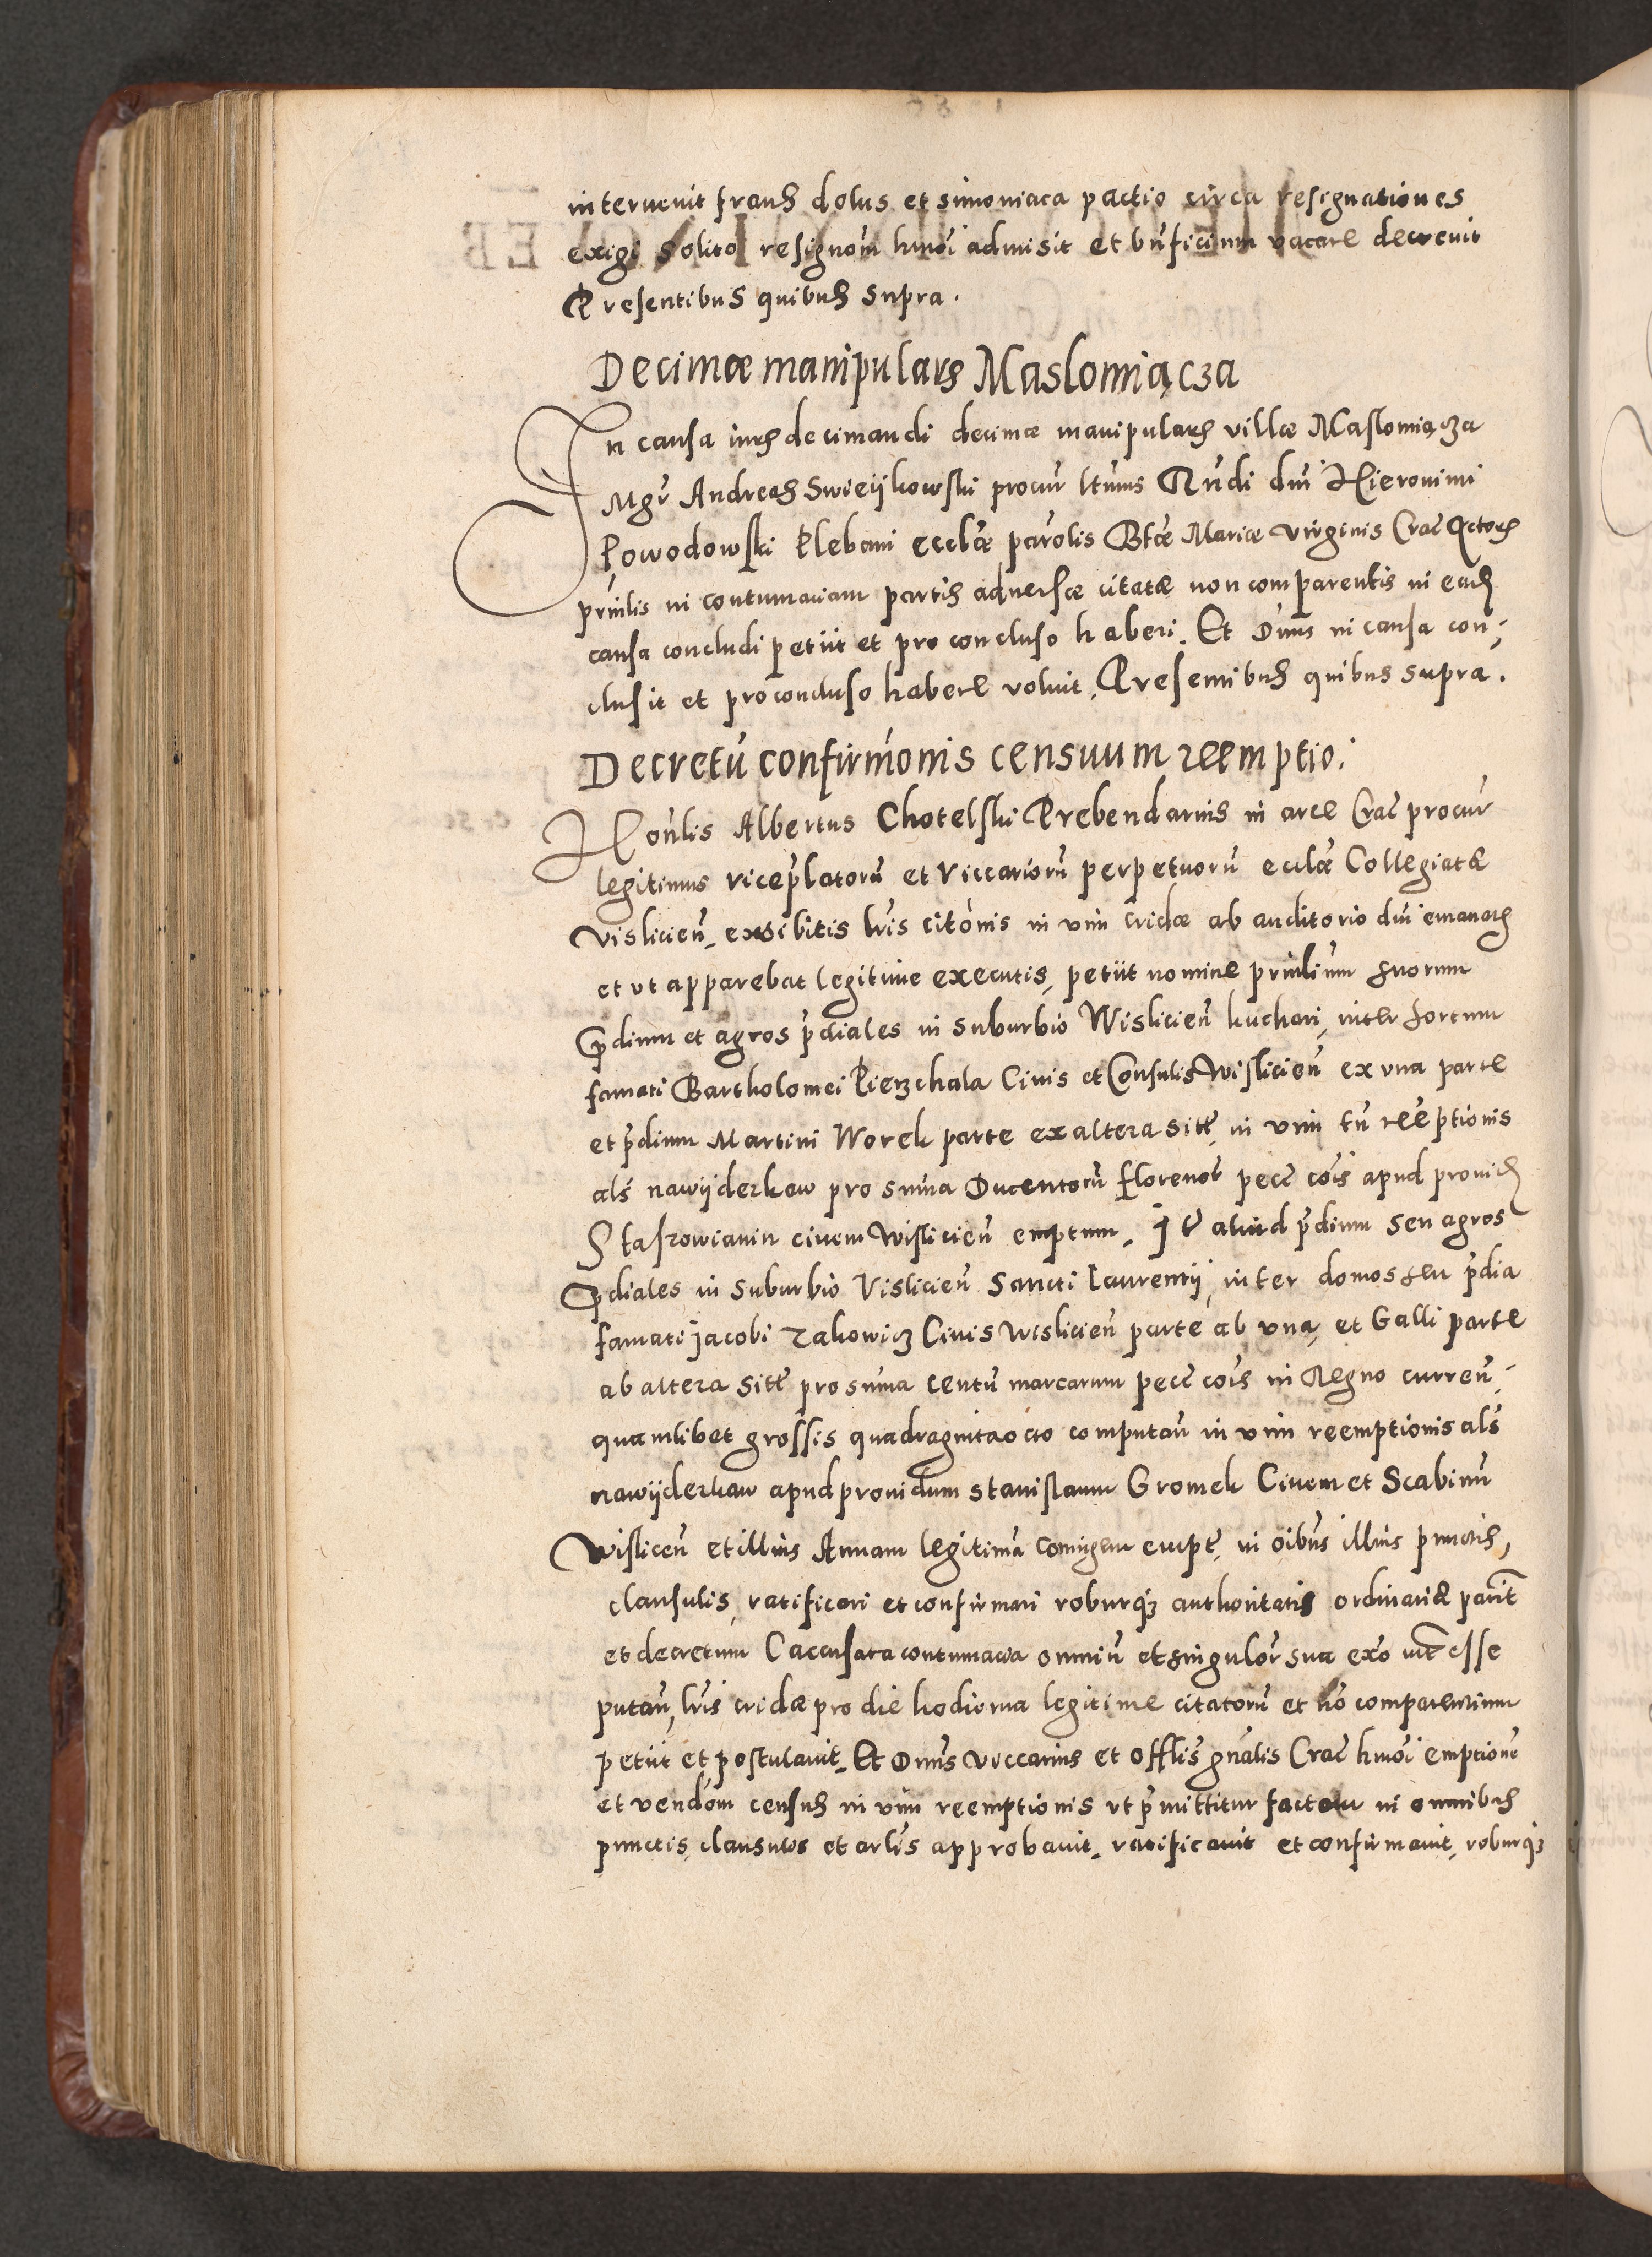 interuenit fraus dolus et simoniaca pactio circa resignationes
exigi solito resignom̄ hmōi admisit et bn̄ficium vacare decreuit
Presentibus quibus supra.
Decimæ manipularis Maslomiącza
In causa iuris decimandi decimæ manipularis villæ Maslomiącza
Mgr̄ Andreas Swieijkowski procur̄ ltīmus Rn̄di dni Hieronimi
Powodowski Plebani eccl̄æ parōlis Btǣ Mariæ virginis Crac̄ Actoris
prīnlis in contumaciam partis aduersæ citatæ non comparentis in eadē
causa concludi petiit et pro concluso haberi. Et Dn̄us in causa con¬
clusit et pro concluso habere voluit, Presentibus quibus supra.
Decretū confirmōnis censuum reemptio:
Honl̄is Albertus Chotelski Prebendarius in arce Crac̄ procur̄
legitimus vicep̄latorū et viccariorū perpetuorū eccl̄æ Collegiatæ
vislicien̄. exhibitis lr̄is citōnis in vim cridæ ab auditorio dn̄i emanatis
et vt apparebat legitime executis, petiit nomine prīnlium suorum
p̄dium et agros p̄diales in suburbio Wislicien̄ kuchari, inter hortum
famati Bartholomei Pierzchala Ciuis et Consulis Wislicien̄ ex vna parte
et p̄dium Martini Worek parte ex altera sitt̄. in vim tn̄ reēptionis
als̄ nawijderkow pro sum̄a Ducentorū florenor̄ pecc̄ cōis apud prouidū
Staszowianin ciuem Wislicien̄ emptum. It̄ aliud p̄dium seu agros
p̄diales in suburbio Vislicien̄ Sancti Laurentij, inter domos seu p̄dia
famati Jacobi Zakowicz Ciuis Wislicien̄ parte ab vna, et Galli parte
ab altera sitt̄ pro sum̄a centū marcarum pecc̄ cōis in Regno curren̄.
quamlibet grossis quadragintaocto computan̄ in vim reemptionis als̄
nawijderkaw apud prouidum Stanislaum Gromek Ciuem et Scabinū
Wislicen̄ et illius Annam legitimā coniugem empt̄. in oībus illius punctis,
clausulis, ratificari et confirmari roburq₃ authoritatis ordinariæ
et decretum (accusata contumacia omniū et singulor̄ sua exō esse
putan̄, lr̄is cridæ pro die hodierna legitime citatorū et nō comparentium
petiit et postulauit. Et Dn̄us viccarius et offl̄is gn̄alis Crac̄ hmōi emptionē
et vendōm census in vim reemptionis vt p̄mittitur factam in omnibus
punctis, clausulis et arl̄is approbauit. ratificauit et confirmauit, roburq₃